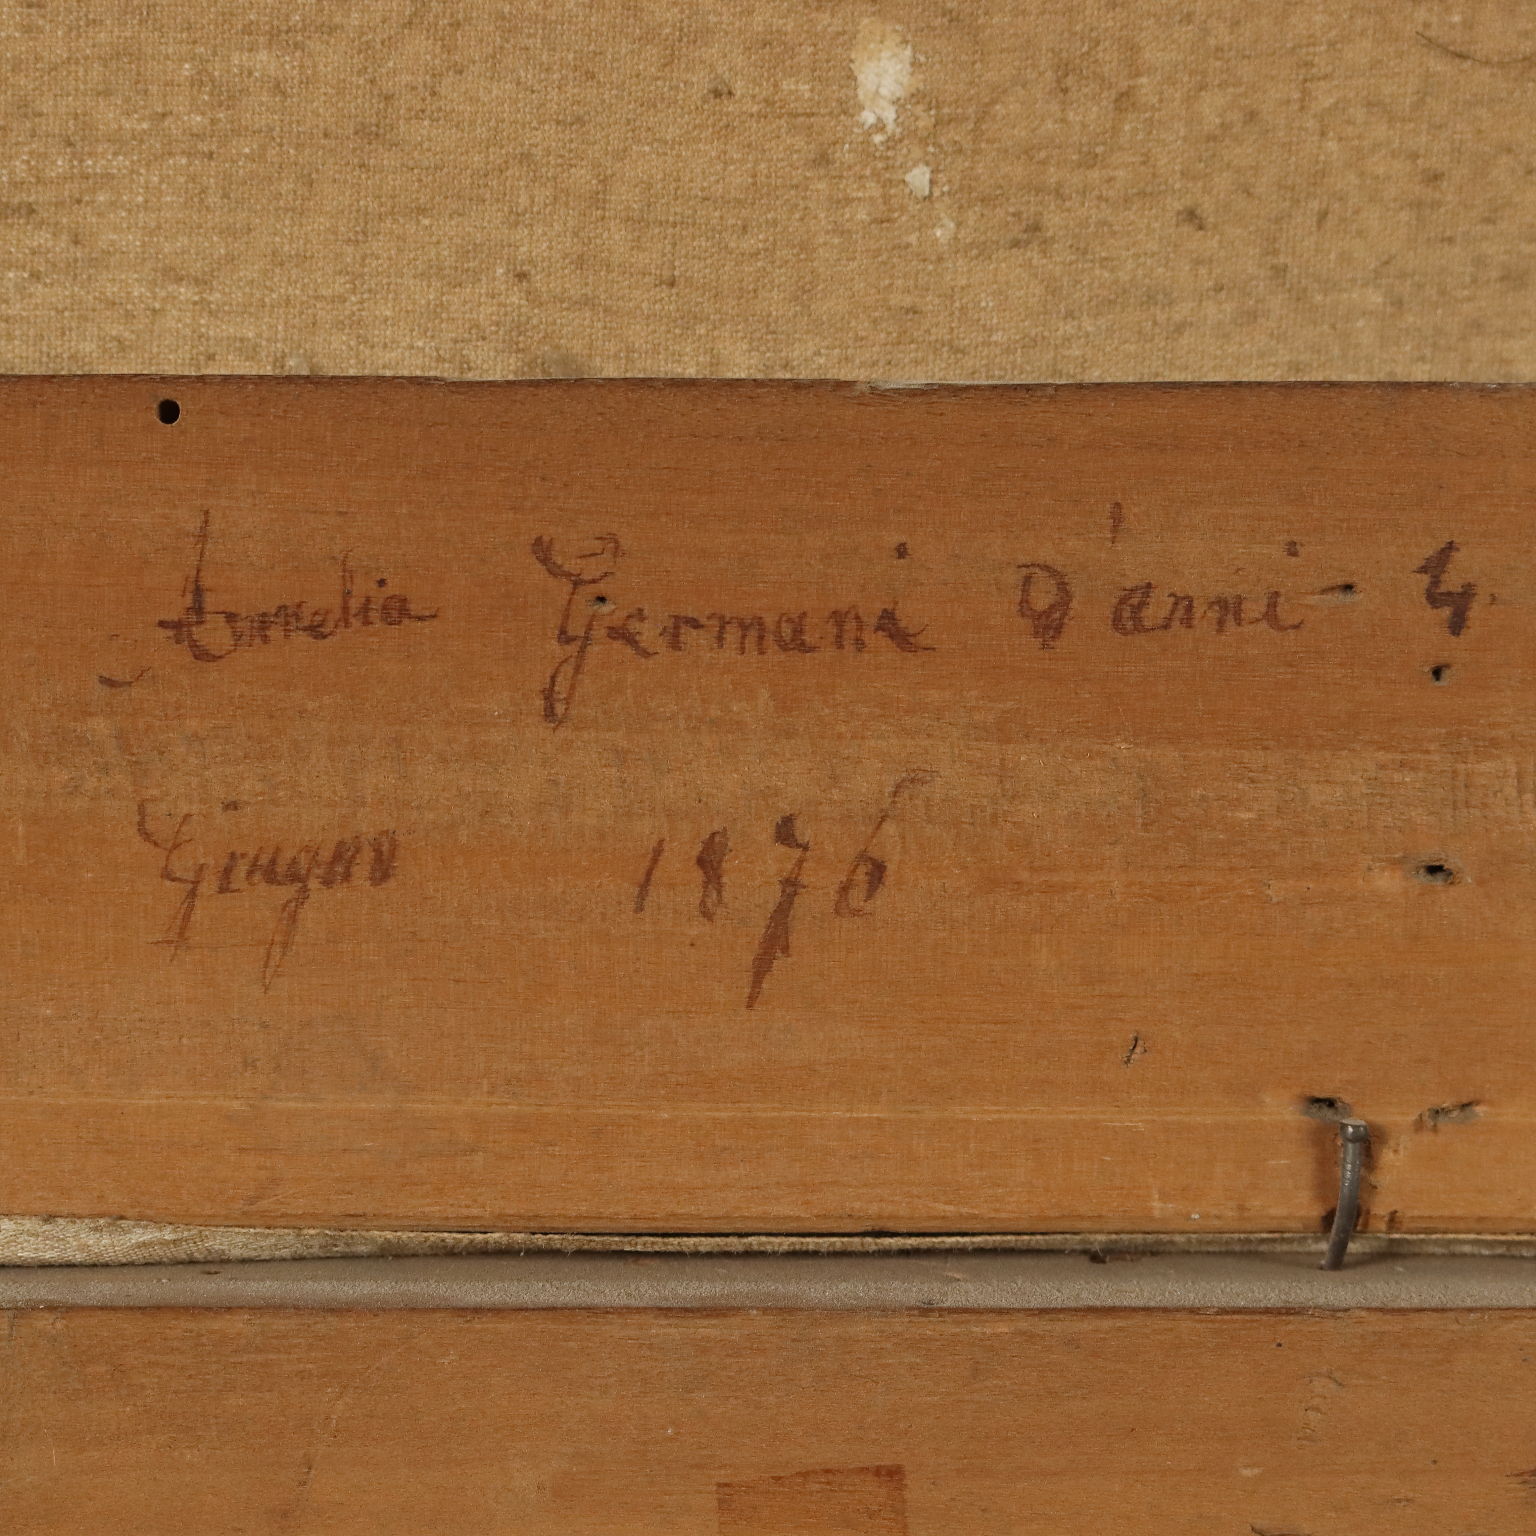 Aurelia Germani D'anni - 4.
Giugno 1876